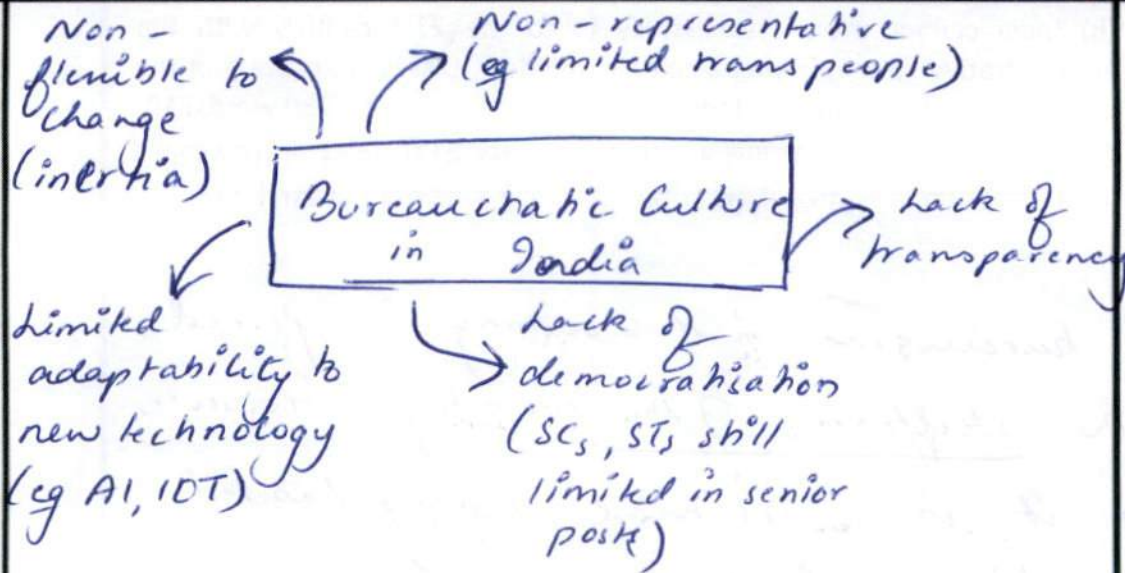 Non-
flexible to
change
(inertia)
Non-representative
(eg limited trans people)
Bureaucratic Culture
in India
Lack of
transparency
Limited
adaptability to
new technology
(eg AI, IOT)
Lack of
democratisation
(SCs, STs still
limited in senior
posts)